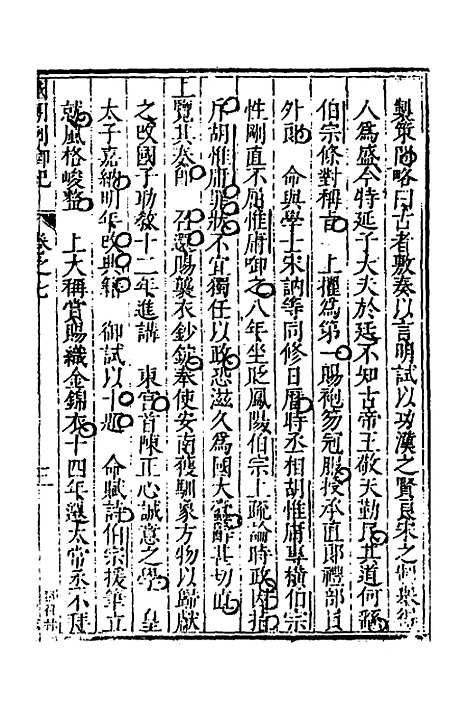 製策問略曰古者敷奏以言明試以功漢之賢良宋之制舉
人為盛今特延子大夫於廷不知古帝王敬天勤民其道何
伯宗條對稱旨　上擢為第一賜袍笏冠服授承直郎禮部員
外郎　命與學士宋訥等同修日曆時丞相胡惟庸專橫伯宗
性剛直不屈惟庸啣之八年坐貶鳳陽伯宗上疏論時政因指
斥胡惟庸罪狀不宜獨任以政恐滋久為國大蠹辭甚切直
上覽其奏即　召還賜襲衣鈔錠奉使安南獲馴象方物以歸獻
之改國子助教十二年進講　東宮首陳正心誠意之學　皇
太子嘉納明年改典籍　御試以十題　命賦詩伯宗援筆立
就風格峻整　上大稱賞賜織金錦衣十四年遷太常丞不拜
國朝列卿記　卷之七